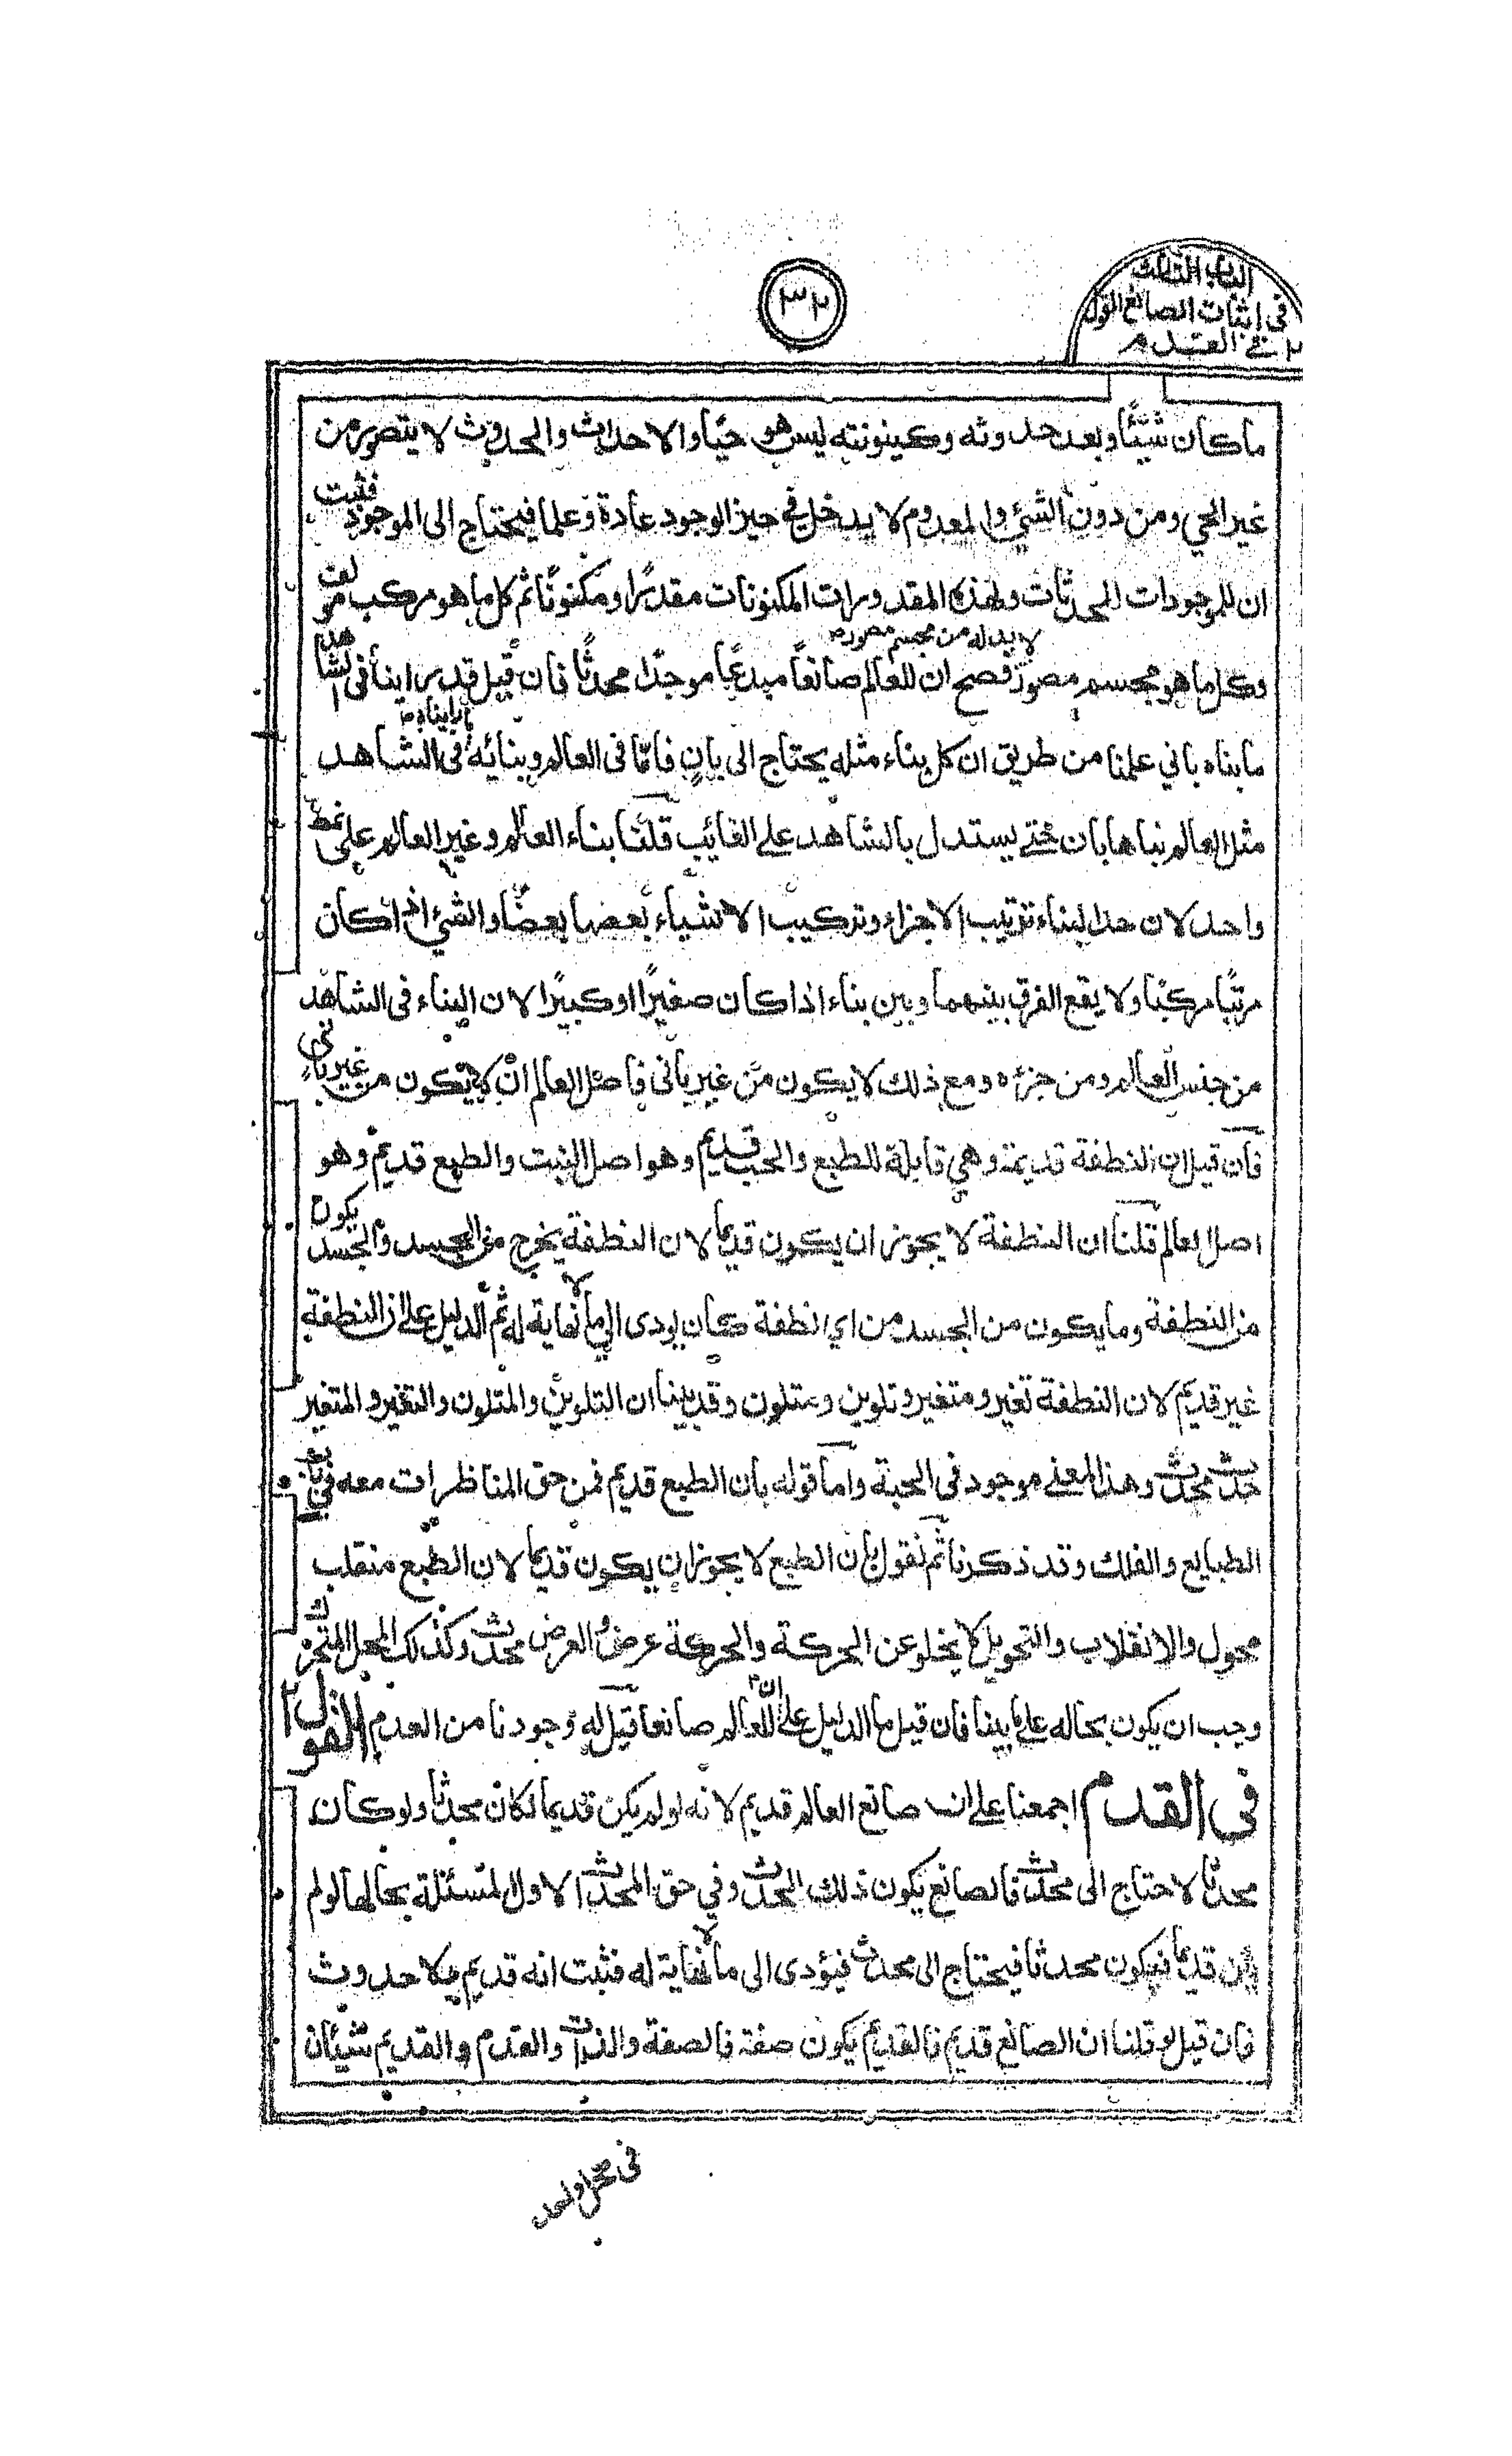 الباب الثالث
في اثبات الصانع القول
٢ في القدم
٣٢
ما كان شيئًا وبعد حدوثه وكينونته ليس هو حيًا والاحداث والحدوث لا يتصور من
غير الحي ومن دون الشئ والمعدوم لا يدخل في حيز الوجود عادة وعلما فيحتاج الى الموجود فثبت
ان للموجودات المحدثات ولهذه المقدورات المكنونات مقدرًا ومكنونًا ثم كل ما هو مركب مولف
لا بد له من مجسم مصور
وكل ما هو مجسم مصور فصح ان للعالم صانعًا مبدعًا موجدًا محدثًا فان قيل قد راينا في الشاهد
ما بناه باني علمنا من طريق ان كل بناء مثله يحتاج الى بانٍ فامّا في العالم وبنائه في الشاهد
مثل العالم بناها بان حتى يستدل بالشاهد على الغائب قلنا بناء العالم وغير العالم على نمط
واحد لان حد البناء ترتيب الاجزاء وتركيب الاشياء بعضها بعضًا والشئ اذا كان
مرتبًا مركبًا ولا يقع الفرق بينهما وبين بناء اذا كان صغيرًا او كبيرًا لان البناء في الشاهد
من جنس العالم ومن جزءه ومع ذلك لا يكون من غير باني فاصل العالم ان لا يكون من غير باني
فان قيل ان النطفة قديمة وهي قابلة للطبع والحب قديم وهو اصل النبت والطبع قديم وهو
اصل العالم قلنا ان النطفة لا يجوز ان يكون قديمًا لان النطفة يخرج من الجسد والجسد يكون
من النطفة وما يكون من الجسد من اي نطفة كان يودى الى ما لا نهاية له ثم الدليل على ان النطفة
غير قديم لان النطفة تغير ومتغير وتلوين ومتلون وقد بينا ان التلوين والمتلون والتغير والمتغير
حدث محدث وهذا المعنى موجود في الحبة واما قوله بان الطبع قديم فمن حق المناظرات معه في
الطبايع والفلك وقد ذكرنا ثم نقول بان الطبع لا يجوز ان يكون قديما لان الطبع منقلب
محول والانقلاب والتحويل لا يخلو عن الحركة والحركة عرض والعرض محدث وكذلك المحل المتحرك
وجب ان يكون بحاله على ما بينا فان قيل ما الدليل على ان للعالم صانعا قيل له وجودنا من العدم القول ٢
في القدم اجمعنا على ان صانع العالم قديم لانه لو لم يكن قديما لكان محدثا ولو كان
محدثا لاحتاج الى محدث فالصانع يكون ذلك المحدث وفي حق المحدث الاول المسئلة بحالها لو لم
يكن قديمًا فيكون محدثا فيحتاج الى محدث فيؤدى الى ما لا نهاية له فثبت انه قديم بلا حدوث
فان قيل لو قلنا ان الصانع قديم فالقديم يكون صفة فالصفة والذات والقدم والقديم شيئان
في محل واحد